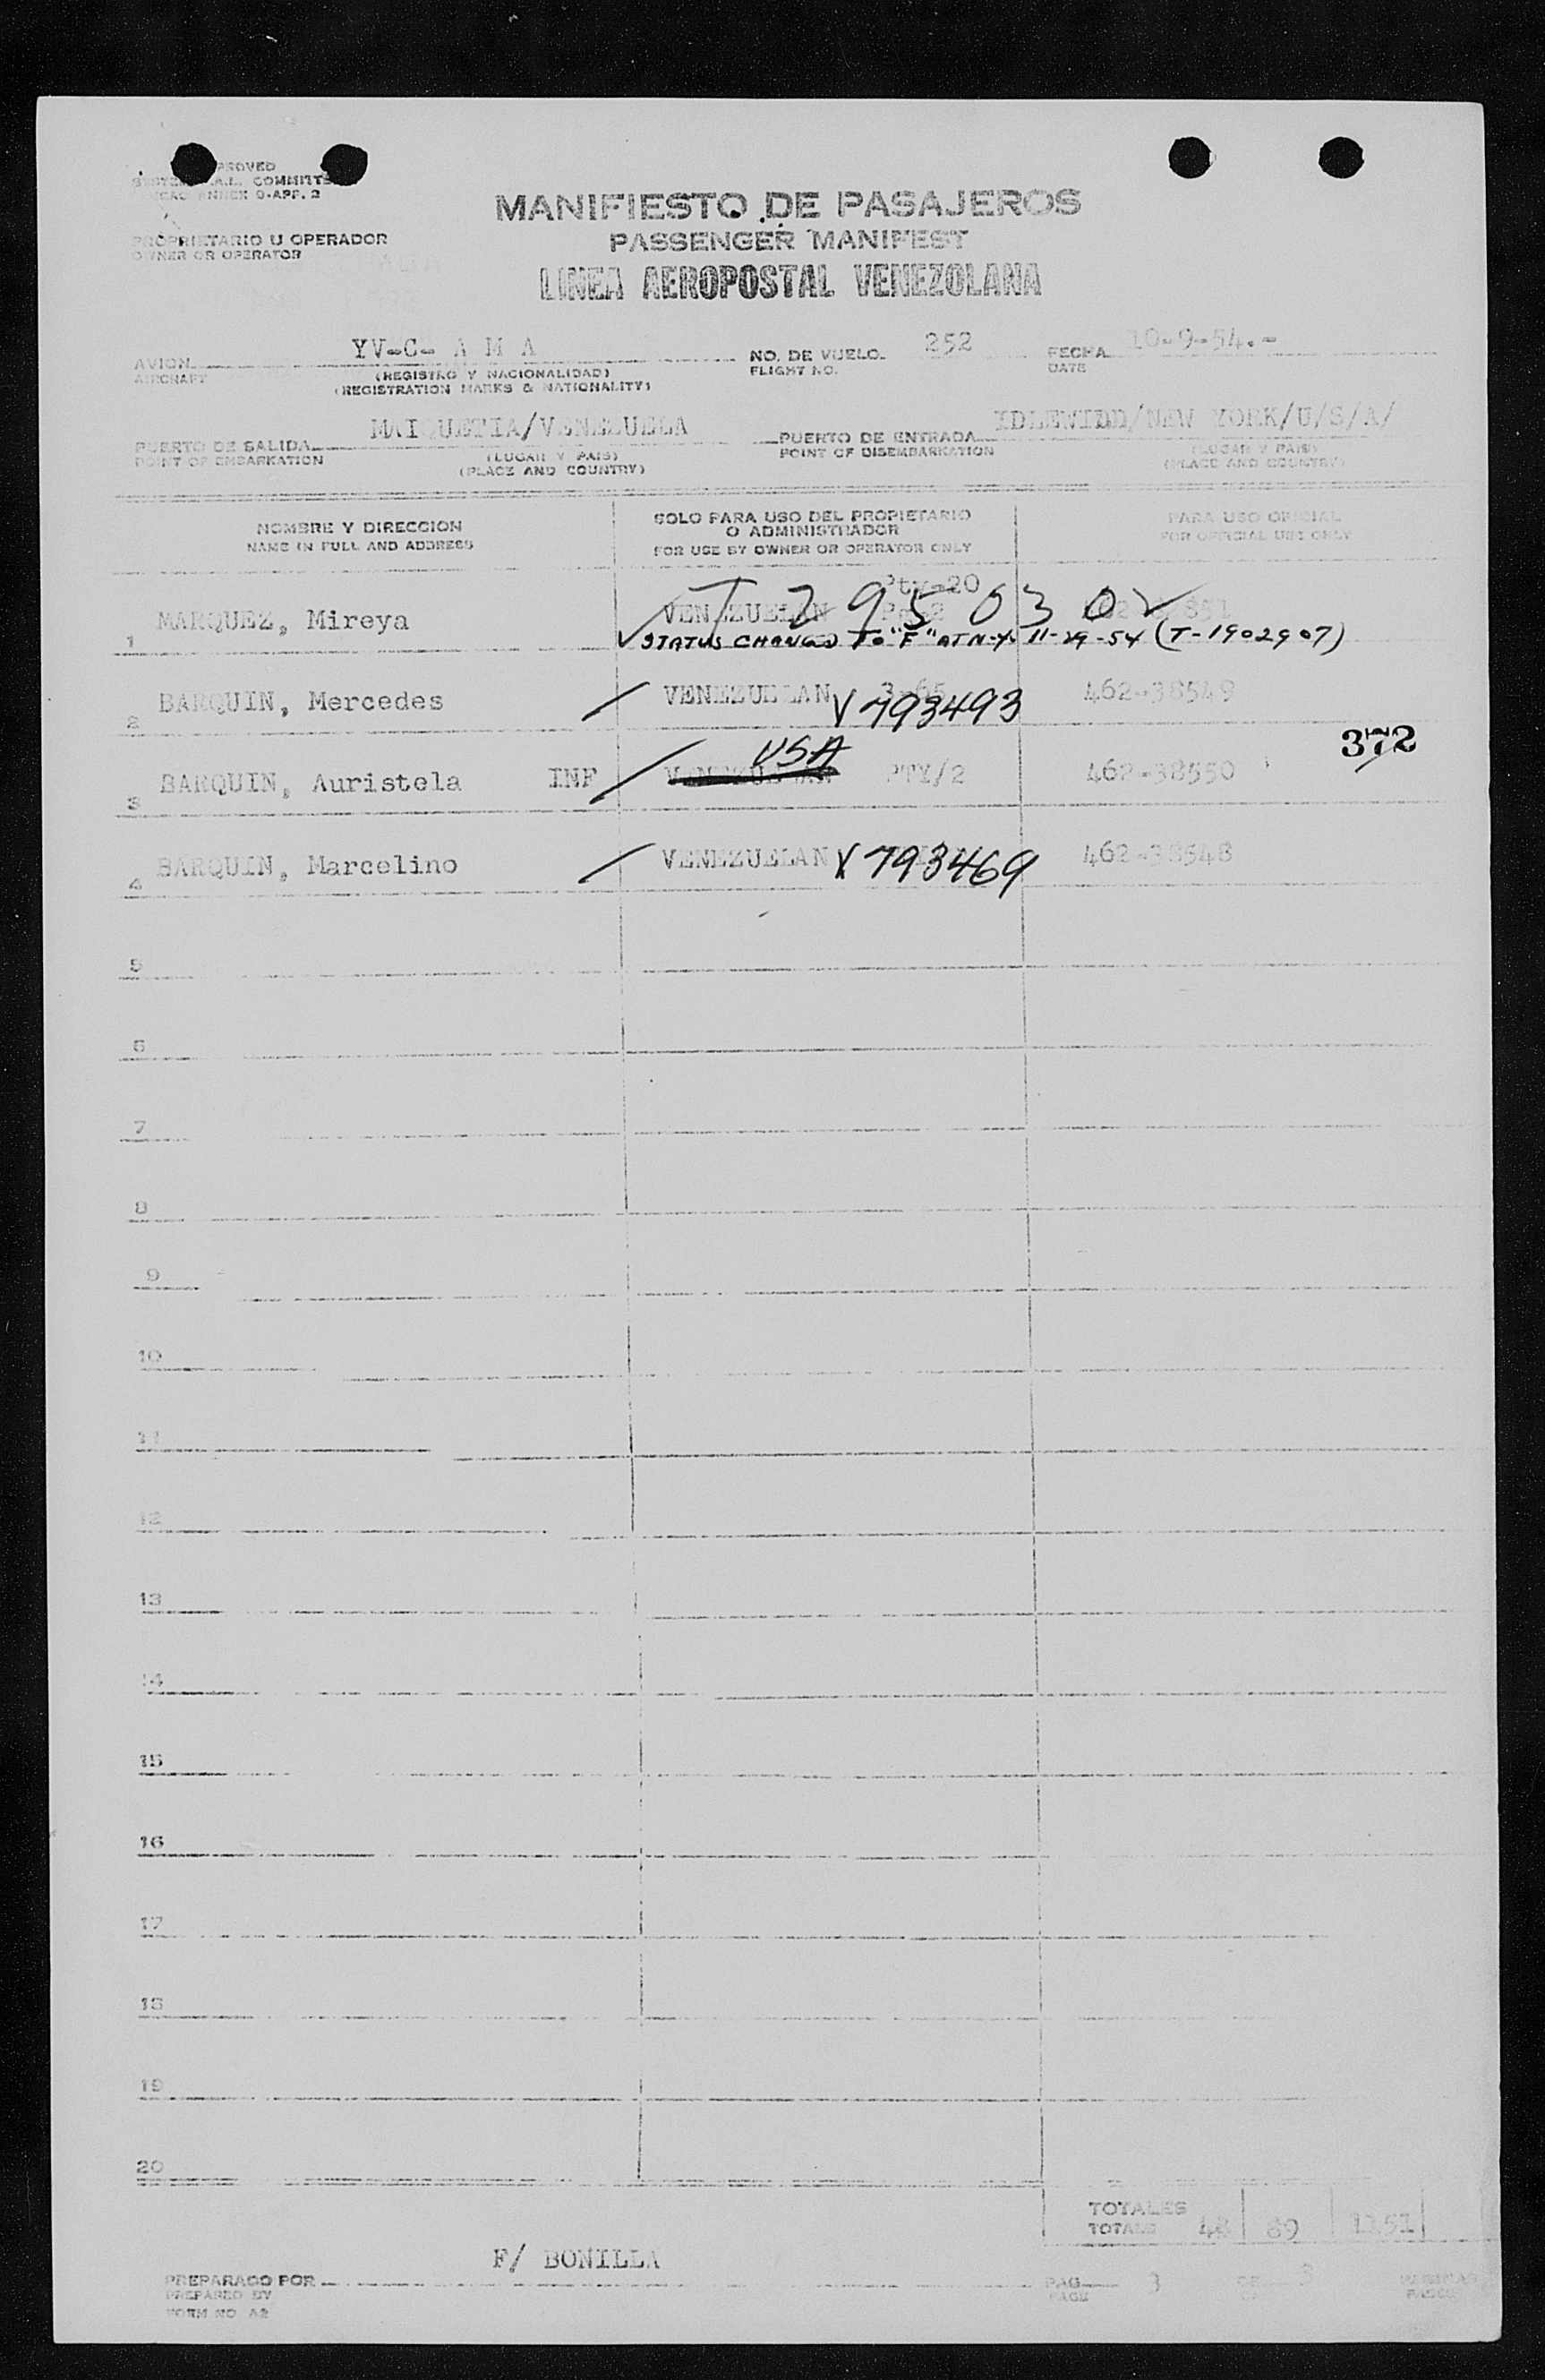 COMMITTEE
ANNEX 9-APP. 2
MANIFIESTO DE PASAJEROS
PASSENGER MANIFEST
LINEA AEROPOSTAL VENEZOLANA
PROPRIETARIO U OPERADOR
OWNER OR OPERATOR
AVION YV-C- A M A NO. DE VUELO. 252 FECHA 10-9-54.-
AIRCRAFT (REGISTRO Y NACIONALIDAD) FLIGHT NO. DATE
(REGISTRATION MARKS & NATIONALITY)
PUERTO DE SALIDA MAIQUETIA/VENEZUELA PUERTO DE ENTRADA IDLEWILD/NEW YORK/U/S/A/
POINT OF EMBARKATION (LUGAR Y PAIS) POINT OF DISEMBARKATION (LUGAR Y PAIS)
(PLACE AND COUNTRY) (PLACE AND COUNTRY)
NOMBRE Y DIRECCION SOLO PARA USO DEL PROPIETARIO PARA USO OFICIAL
O ADMINISTRADOR
NAME IN FULL AND ADDRESS FOR USE BY OWNER OR OPERATOR ONLY FOR OFFICIAL USE ONLY
Pty-20
1 MARQUEZ, Mireya VENEZUELAN T 2950302
STATUS CHANGED TO "F" AT N.Y. 11-29-54 (T-1902907)
2 BARQUIN, Mercedes VENEZUELAN 3-65 V793493 462-38549
372
USA
3 BARQUIN, Auristela INF VENEZUELAN PTY/2 462-38550
4 BARQUIN, Marcelino VENEZUELAN V793469 462-38548
5
6
7
8
9
10
11
12
13
14
15
16
17
18
19
20
TOTALES
TOTALS 48 89 1151
F/ BONILLA
PREPARADO POR PAG. 3 DE 3 PAGINAS
PREPARED BY PAGE OF PAGES
FORM NO A2